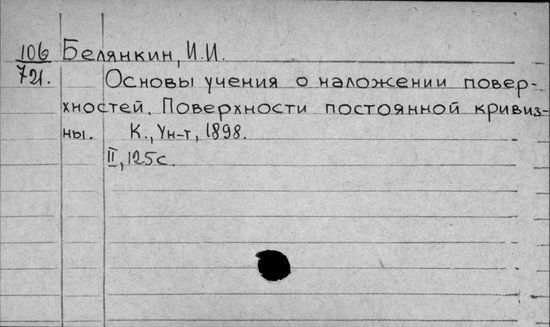 106 Белянкин, И.И.
721. Основы учения о наложении повер-
хностей. Поверхности постоянной кривиз-
ны. К., Ун-т, 1898.
II, 125 с.